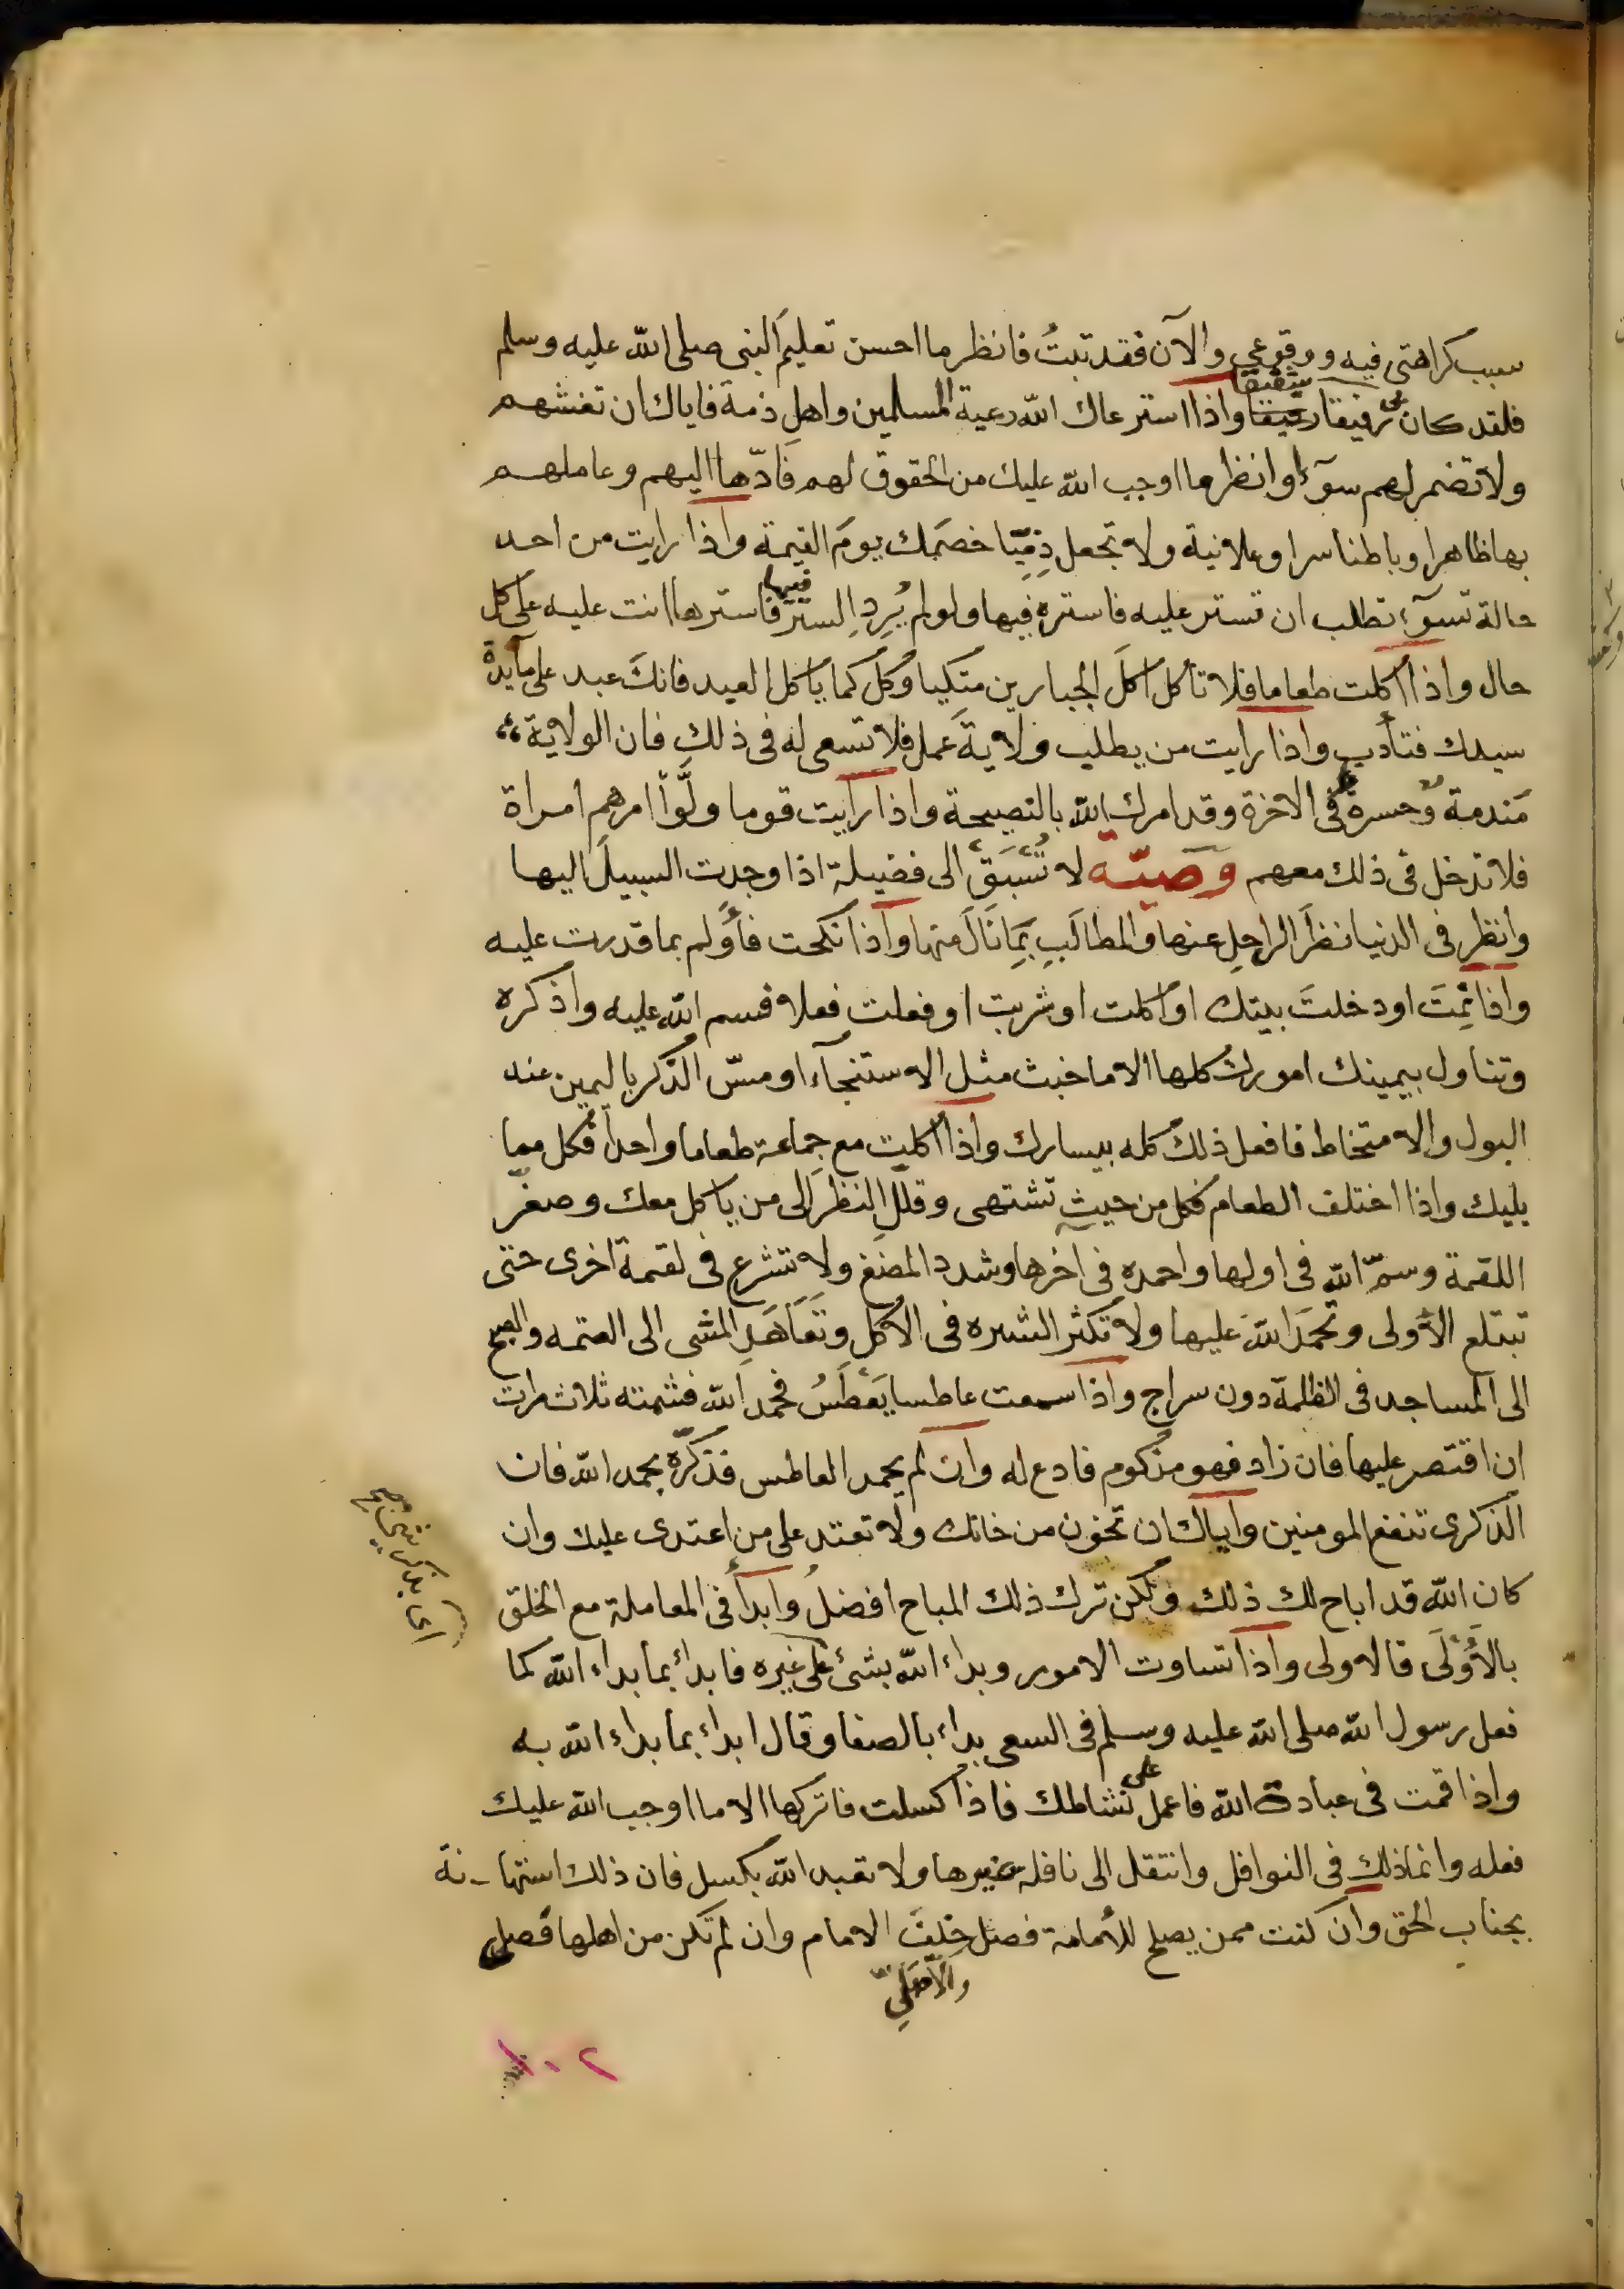 سبب كراهتى فيه ووقوعى والآن فقد تبتُ فانظر ما احسن تعليم النبى صلى الله عليه وسلم
شفيقا
فلقد كان رفيقا رحيقا واذا استرعاك الله رعية المسلمين واهل ذمة فاياك ان تغشهم
ولا تضمر لهم سوآء وانظر ما اوجب الله عليك من الحقوق لهم فادّها اليهم وعاملهم
بها ظاهرا وباطنا سرا وعلانية ولا تجعل ذِمِّيّا خصمَك يومَ القيمة واذا رايت من احد
حالة تسوٓء تطلب ان تستر عليه فاستره فيها ولو لم يُرِدِ الستر فيها فاسترها انت عليه على كل
حال واذا اكلت طعاما فلا تاكل اكلَ الجبارين متكيا وكل كما ياكل العبيد فانكَ عبد على مآيدة
سيدك فتأدب واذا رايت من يطلب ولايةَ عمل فلا تسعى له فى ذلك فان الولاية
مَندمة وحسرة فى الاخرة وقد امرك الله بالنصيحة واذا رايت قوما ولَّوا امرهم امراة
فلا تدخل فى ذلك معهم وصيّة لا تُسْبَقْ الى فضيلة اذا وجدت السبيلَ اليها
وانظر فى الدنيا نظرَ الراحِلِ عنها والمطالَبِ بمَا نَالَ منها واذا نكحت فأَوْلم بما قدرت عليه
واذا نِمتَ او دخلتَ بيتك او اكلت او شربت او فعلت فعلا فسم الله عليه واذكره
وتناول بيمينك امورك كلها الا ما خبث مثل الاستنجآء او مسّ الذكر باليمين عند
البول والامتخاط فافعل ذلك كله بيسارك واذا اكلت مع جماعة طعاما واحدا فكل مما
يليك واذا اختلف الطعام فكل من حيث تشتهى وقللِ النظرَ الى من ياكل معك وصغّر
اللقمة وسمّ الله فى اولها واحمده فى اخرها وشدد المضغ ولا تشرع فى لقمة اخرى حتى
تبتلع الأولى وتحمَدَ اللهَ عليها ولا تكثر الشره فى الاكل وتَعَاهَدِ المشى الى العتمه والصبح
الى المساجد فى الظلمة دون سراج واذا سمعت عاطسا يَعْطَسُ فحمد الله فشمته ثلاث مرات
ان اقتصر عليها فان زاد فهو مزكوم فادع له وان لم يحمد العاطس فذكّره بحمد الله فان
الذكرى تنفع المومنين واياك ان تخون من خانك ولا تعتد على من اعتدى عليك وان
كان الله قد اباح لك ذلك ولكن ترك ذلك المباح افضلُ وابدأ فى المعاملة مع الخلق
بالأَوْلَى فالاولى واذا تساوت الامور وبداء الله بشئ على غيره فابدأ بما بداء الله كما
فعل رسول الله صلى الله عليه وسلم فى السعى بداء بالصفا وقال ابداء بما بداء الله به
واذا قمت فى عبادة الله فاعمل على نشاطك فاذا كسلت فاتركها الا ما اوجب الله عليك
فعله وانما ذلك فى النوافل وانتقل الى نافلة غيرها ولا تعبد الله بكسل فان ذلك استهانة
بجناب الحق وان كنت ممن يصلح للأمامة فصل خلفَ الامام وان لم تكن من اهلها فصل
١٠٢